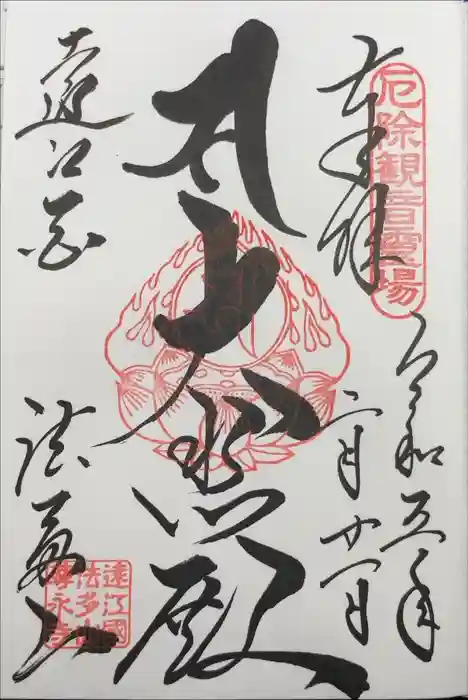 厄除観音霊場
奉拝
令和五年
二月廿一日
大悲殿
遠江国
法多山
遠江國
法多山
尊永寺